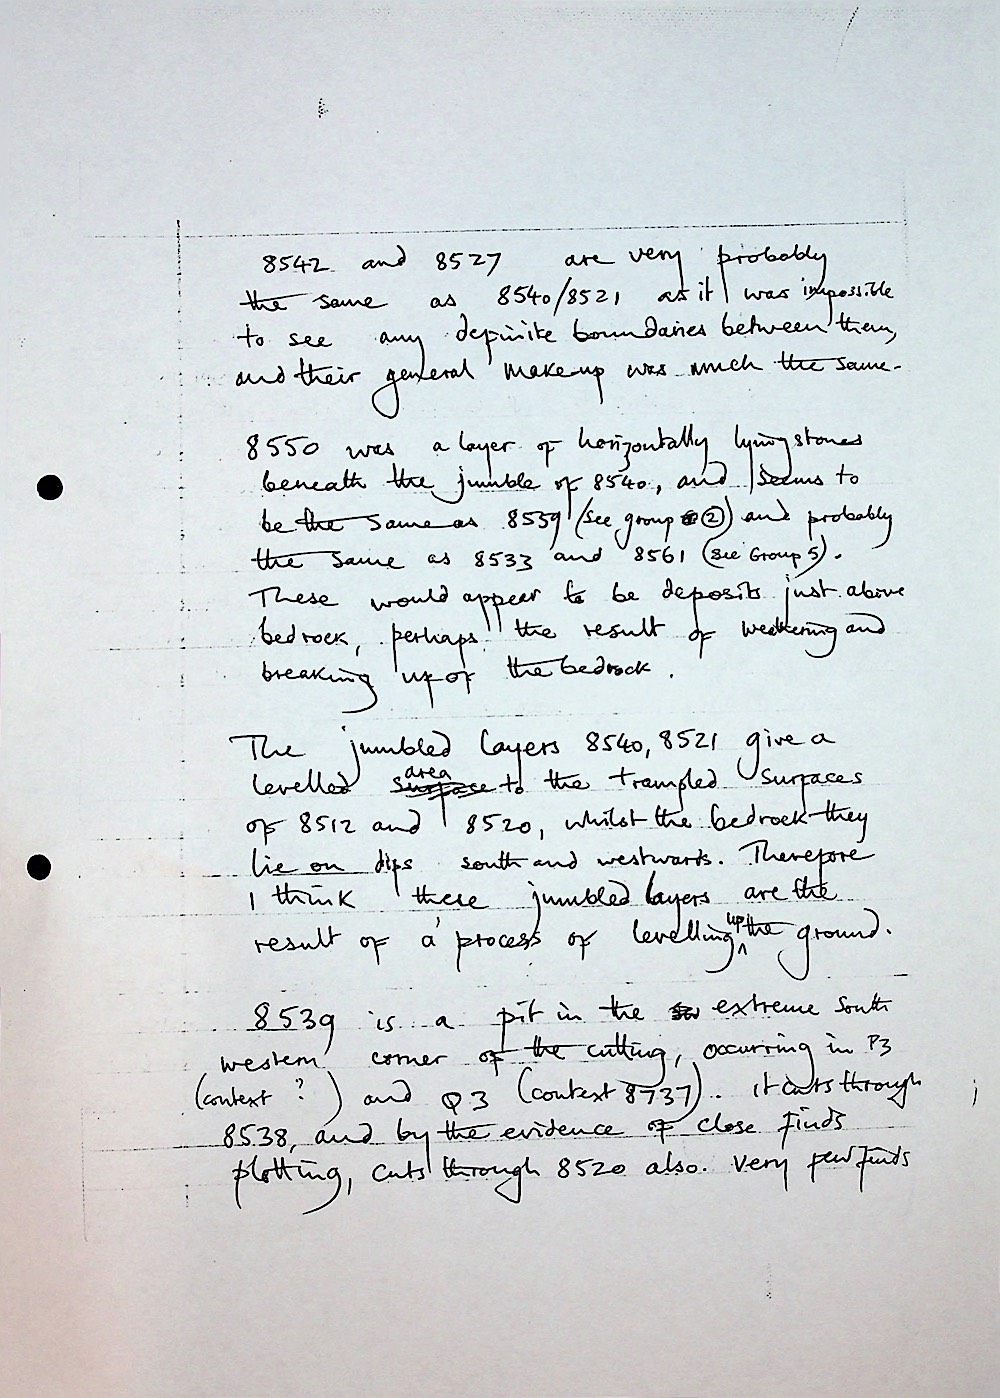 8542 and 8527 are very probably
the same as 8540/8521 as it was impossible
to see any definite boundaries between them,
and their general make-up was much the same.
8550 was a layer of horizontally lying stones
beneath the jumble of 8540, and seems to
be the same as 8559 (see group ②) and probably
the same as 8533 and 8561 (see Group 5).
These would appear to be deposits just above
bedrock, perhaps the result of weathering and
breaking up of the bedrock.
The jumbled layers 8540, 8521 give a
levelled area to the trampled surfaces
of 8512 and 8520, whilst the bedrock they
lie on dips south and westwards. Therefore
I think these jumbled layers are the
result of a process of levelling up the ground.
8539 is a pit in the extreme south
western corner of the cutting, occurring in P3
(context ? ) and Q3 (context 8737). it cuts through
8538, and by the evidence of close finds
plotting, cuts through 8520 also. Very few finds